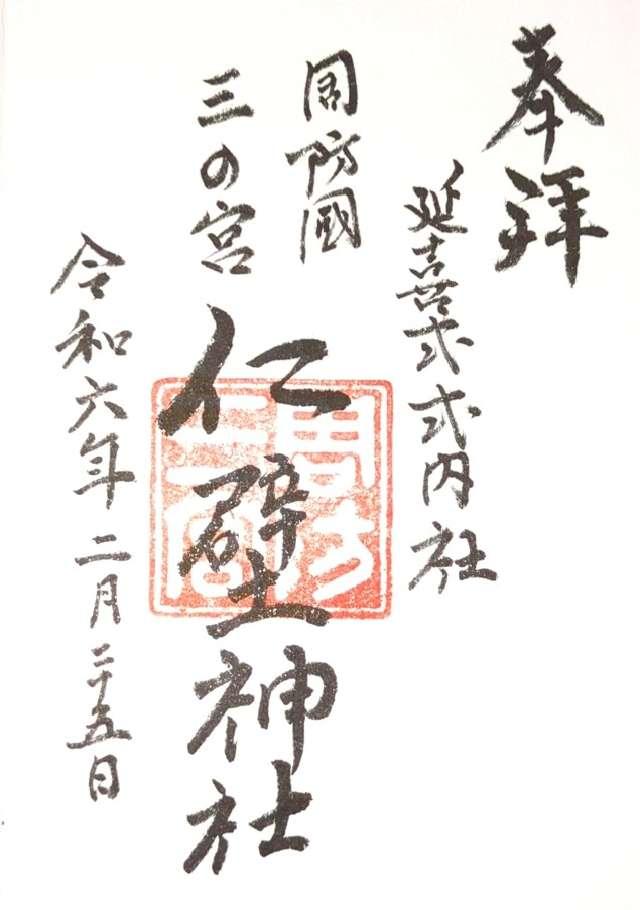 奉拝
延喜式式内社
周防國
三の宮
仁壁神社
周防
三宮
令和六年二月二十五日